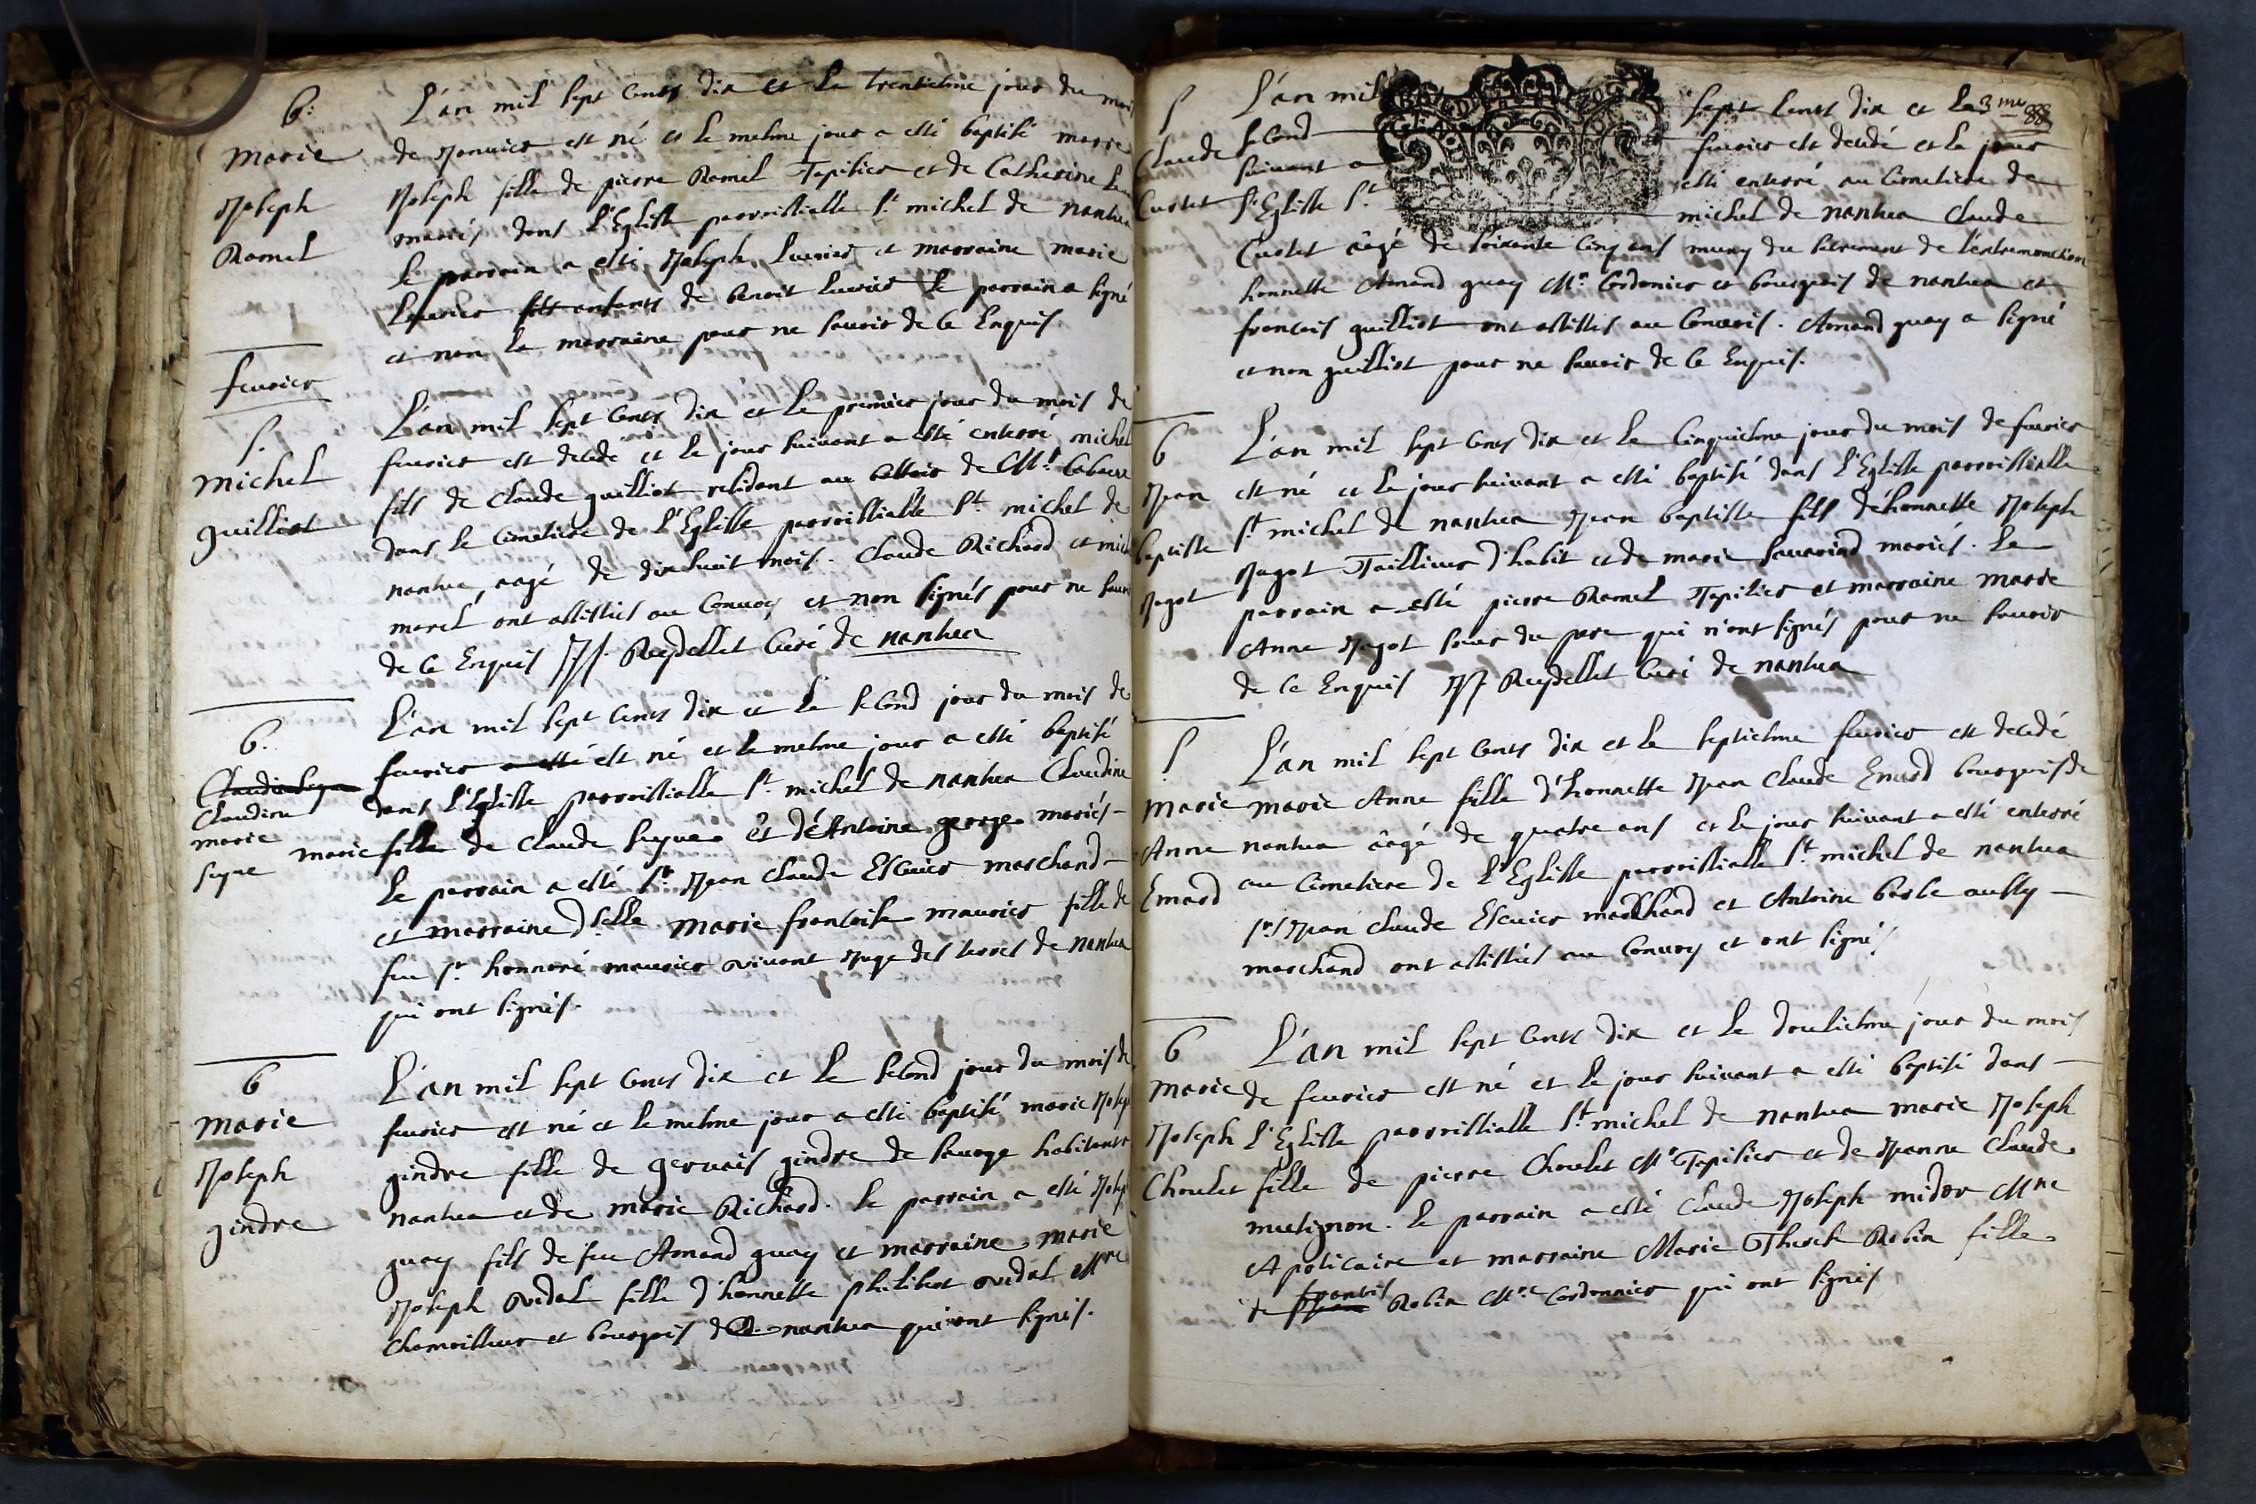 b.
Marie
Joseph
Ramel
L'an mil sept cents dix et le trentiesme jour du mois
de Janvier est né et le mesme jour a esté baptisé marie
Joseph fille de pierre Ramel Tapissier et de Catherine
mariés dans l'Eglisse parroissialle St michel de nantua
le parrain a esté Joseph luvrier et marraine marie
luvrier fils enfants de benoit luvrier le parrain a signé
et non la marraine pour ne savoir de ce Enquis
feuvrier
S.
michel
guilliot
L'an mil sept cents dix et le premier jour du mois de
feuvrier est decedé et le jour suivant a esté enterré michel
fils de Claude guilliot residant au de Mr
dans le Cimetiere de l'Eglisse parroissialle St michel de
nantua, aagé de dixhuit mois. Claude Richard et
morel ont assistés au Convoy et non signés pour ne savoir
de ce Enquis JJ. Reydellet Curé de nantua
b.
Claudine
marie
seyne
L'an mil sept cents dix et le second jour du mois de
feuvrier a esté est né et le mesme jour a esté baptisé
dans l'Eglisse parroissialle St michel de nantua Claudine
marie fille de Claude seyne et d'Antoine george mariés
Le parrain a esté Sr Jean Claude Escuier marchand
et marraine Dselle marie francoise maurier fille de
feu Sr honnoré maurier vivant Juge des terres de nantua
qui ont signés.
b
Marie
Joseph
gindre
L'an mil sept cents dix et le second jour du mois de
feuvrier est né et le mesme jour a esté baptisé marie Joseph
gindre fille de gervais gindre de habitant
nantua et de marie Richard. le parrain a esté Joseph
guay fils de feu Amand guay et marraine marie
Joseph vidal fille d'honneste philibert vidal Mre
Chamoisseur et bourgeois de nantua qui ont signés.
S
Claude
Curtet
L'an mil sept cents dix et le 3me 88
second feuvrier est decedé et le jour
suivant a esté enterré au Cimetiere de
l'Eglisse St michel de nantua Claude
Curtet aagé de soixante cinq ans muny du sacrement de l'extremonction
honneste Amand guay Mr Cordonier et bourgeois de nantua et
francois guilliot ont assistés au Convois. Amand guay a signé
et non guilliot pour ne savoir de ce Enquis.
b
Jean
baptiste
Jagot
L'an mil sept cents dix et le Cinquiesme jour du mois de feuvrier
est né et le jour suivant a esté baptisé dans l'Eglisse parroissialle
St michel de nantua Jean baptiste fils d'honneste Joseph
Jagot Taillieur d'habit et de marie mariés. Le
parrain a esté pierre Ramel Tapissier et marraine marie
Anne Jagot soeur du pere qui n'ont signés pour ne savoir
de ce Enquis JJ Reydellet Curé de nantua
S
Marie
Anne
Emard
L'an mil sept cents dix et le septiesme feuvrier est decedé
marie Anne fille d'honneste Jean Claude Emard bourgeois de
nantua aagé de quatre ans et le jour suivant a esté enterré
au Cimetiere de l'Eglisse parroissialle St michel de nantua
Srs Jean Claude Escuier marchand et Antoine aussy
marchand ont assistés au Convoy et ont signés
b
Marie
Joseph
Choulet
L'an mil sept cents dix et le douziesme jour du mois
de feuvrier est né et le jour suivant a esté baptisé dans
l'Eglisse parroissialle St michel de nantua marie Joseph
fille de pierre Choulet Mr Tapissier et de Jeanne Claude
mutignon. le parrain a esté Claude Joseph midor Mre
Apoticaire et marraine Marie Therese Robin fille
de francois Robin Mre Cordonnier qui ont signés